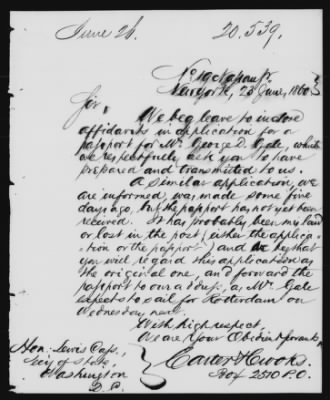 June 26.
20.539.
New York, 23 June, 1860
Sir,
We beg leave to inclose
affidavits in application for a
passport for Mr. George D. Gate, which
we respectfully ask you to have
prepared and transmitted to us.
A similar application, we
are informed, was made some five
days ago, but the passport has not yet been
received. It has probably been
or lost in the post (either the applica-
tion or the passport) and we beg that
you will regard this application as
the original one, and forward the
passport to our address, as Mr. Gate
expects to sail for Rotterdam on
Wednesday next.
With high respect,
We are Your Obedient Servants,
Hon. Lewis Cass,
Secy of State,
Washington
D.C.
Box 2510 P.O.